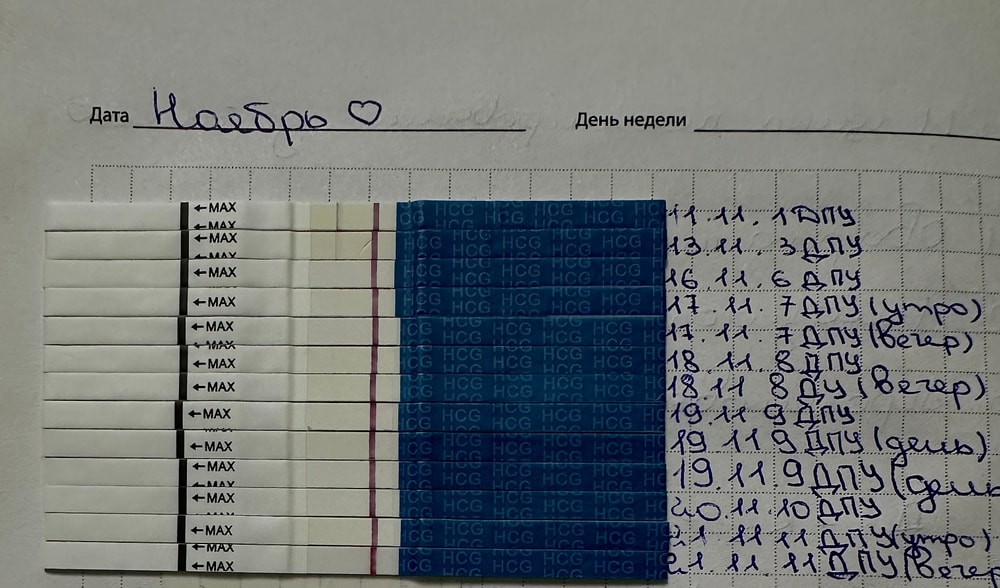 Дата Ноябрь День недели
←MAX HCG HCG HCG HCG 11.11. 1 ДПУ
←MAX HCG HCG HCG 13.11. 3 ДПУ
←MAX HCG HCG HCG 16.11. 6 ДПУ
←MAX HCG HCG HCG 17.11. 7 ДПУ (утро)
←MAX HCG HCG HCG 17.11. 7 ДПУ (вечер)
←MAX HCG HCG HCG 18.11 8 ДПУ
←MAX HCG HCG HCG 18.11 8 ДУ (вечер)
←MAX HCG HCG HCG 19.11 9 ДПУ
←MAX HCG HCG HCG 19 11 9 ДПУ (день)
←MAX HCG HCG HCG 19 11.9 ДПУ
←MAX HCG HCG HCG 20.11.10 ДПУ
←MAX HCG HCG HCG 21 11 11 ДПУ (утро)
←MAX HCG HCG HCG 21.11 11 ДПУ (вечер